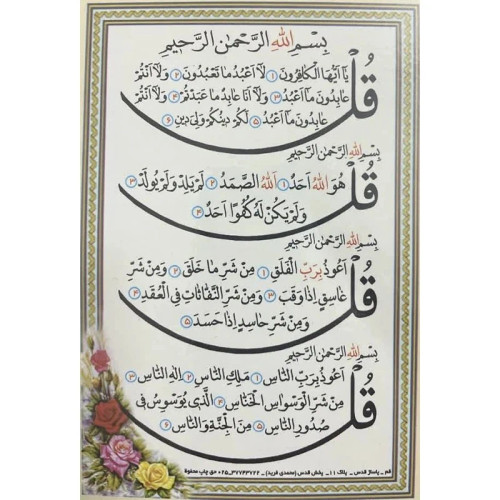 بِسْمِ اللهِ الرَّحْمٰنِ الرَّحيمِ
قُلْ يٰٓا اَيُّهَا الْكَافِرُونَ ۱ لٰٓا اَعْبُدُ مَا تَعْبُدُونَ ۲ وَلٰٓا اَنْتُمْ
عَابِدُونَ مٰٓا اَعْبُدُ ۳ وَلٰٓا اَنَا عَابِدٌ مَا عَبَدْتُمْ ۴ وَلٰٓا اَنْتُمْ
عَابِدُونَ مٰٓا اَعْبُدُ ۵ لَكُمْ دينُكُمْ وَلِيَ دينِ ۶
بِسْمِ اللهِ الرَّحْمٰنِ الرَّحيمِ
قُلْ هُوَ اللهُ اَحَدٌ ۱ اَللهُ الصَّمَدُ ۲ لَمْ يَلِدْ وَلَمْ يُولَدْ ۳
وَلَمْ يَكُنْ لَهُ كُفُوًا اَحَدٌ ۴
بِسْمِ اللهِ الرَّحْمٰنِ الرَّحيمِ
قُلْ اَعُوذُ بِرَبِّ الْفَلَقِ ۱ مِنْ شَرِّ مَا خَلَقَ ۲ وَمِنْ شَرِّ
غَاسِقٍ اِذَا وَقَبَ ۳ وَمِنْ شَرِّ النَّفَّاثَاتِ فِى الْعُقَدِ ۴
وَمِنْ شَرِّ حَاسِدٍ اِذَا حَسَدَ ۵
بِسْمِ اللهِ الرَّحْمٰنِ الرَّحيمِ
قُلْ اَعُوذُ بِرَبِّ النَّاسِ ۱ مَلِكِ النَّاسِ ۲ اِلٰهِ النَّاسِ ۳
مِنْ شَرِّ الْوَسْوَاسِ الْخَنَّاسِ ۴ اَلَّذى يُوَسْوِسُ فى
صُدُورِ النَّاسِ ۵ مِنَ الْجِنَّةِ وَالنَّاسِ ۶
قم ـ پاساژ قدس ـ پلاک ۱۱ـ پخش قدس (محمدی فرید) ـ ۳۷۷۴۳۷۲۲ـ۰۲۵ حق چاپ محفوظ